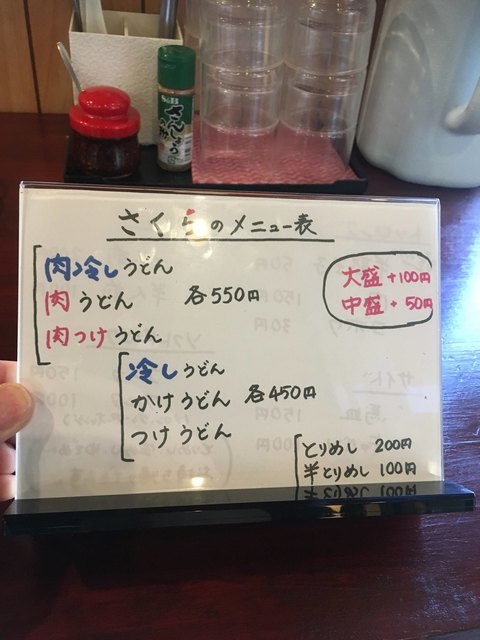 S&B
さんしょう
さくらのメニュー表
肉冷しうどん
肉うどん 各550円
肉つけうどん
大盛+100円
中盛+50円
冷しうどん
かけうどん 各450円
つけうどん
とりめし 200円
半とりめし 100円